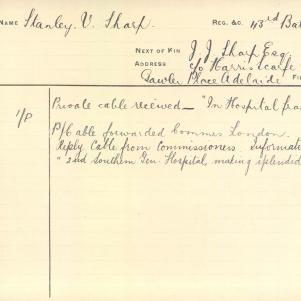 NAME Stanley. V. Sharp. REG. &C. 43rd Bat
NEXT OF KIN J. J. Sharp Esq.
ADDRESS c/o Harris Scarfe
Gawler Place Adelaide FI
Private cable received — "In Hospital fra
1/P
P/Cable forwarded Commrs London.
Reply Cable from Commissioners. Informat
"2nd Southern Gen. Hospital, making splendid